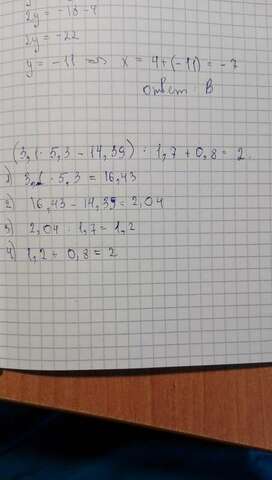 2y = -18-4
2y = -22
y = -11 => x = 4+(-11) = -7
ответ: В
(3,1 · 5,3 - 14,39) : 1,7 + 0,8 = 2.
1) 3,1 · 5,3 = 16,43
2) 16,43 - 14,39 = 2,04
3) 2,04 : 1,7 = 1,2
4) 1,2 + 0,8 = 2